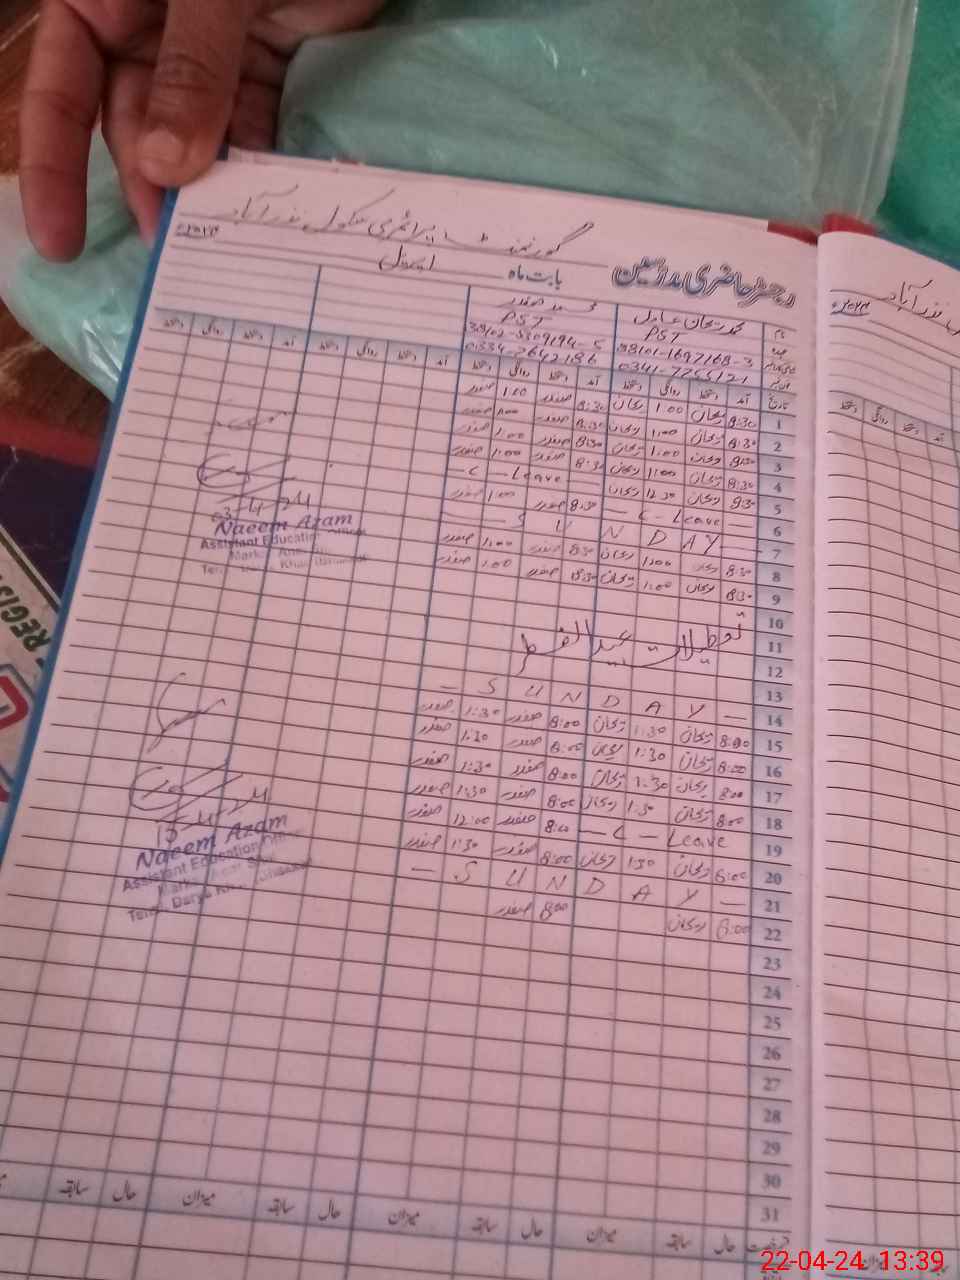 گورنمنٹ پرائمری سکول نذر آباد
رجسٹر حاضری مدرسین بابت ماہ اپریل ۲۰۲۴ء
نام محمد ریحان عادل محمد صفدر
عہدہ PST PST
38101-1697168-3 38102-5309194-5
0341-7755121 0334-7642186
تاریخ آمد دستخط روانگی دستخط آمد دستخط روانگی دستخط آمد دستخط روانگی دستخط آمد دستخط روانگی دستخط
1 8:30 ریحان 1:00 ریحان 8:30 صفدر 1:00 صفدر
2 8:30 ریحان 1:00 ریحان 8:30 صفدر 1:00 صفدر
3 8:30 ریحان 1:00 ریحان 8:30 صفدر 1:00 صفدر
4 8:30 ریحان 1:00 ریحان 8:30 صفدر 1:00 صفدر
5 8:30 ریحان 12:30 ریحان — C — Leave —
6 — C — Leave 8:30 صفدر 1:00 صفدر
7 — S U N D A Y —
8 8:30 ریحان 1:00 ریحان 8:30 صفدر 1:00 صفدر
9 8:30 ریحان 1:00 ریحان 8:30 صفدر 1:00 صفدر
10
11 تعطیلات عیدالفطر
12
13
14 — S U N D A Y —
15 8:00 ریحان 1:30 ریحان 8:00 صفدر 1:30 صفدر
16 8:00 ریحان 1:30 ریحان 8:00 صفدر 1:30 صفدر
17 8:00 ریحان 1:30 ریحان 8:00 صفدر 1:30 صفدر
18 8:00 ریحان 1:30 ریحان 8:00 صفدر 1:30 صفدر
19 — C — Leave 8:00 صفدر 12:00 صفدر
20 8:00 ریحان 1:30 ریحان 8:00 صفدر 1:30 صفدر
21 — S U N D A Y —
22 8:00 ریحان 8:00 صفدر
23
24
25
26
27
28
29
30
31
حال سابقہ میزان حال سابقہ میزان حال سابقہ میزان حال سابقہ
03-4-24
Naeem Azam
Assistant Education Officer
Markaz
Teh. Darya Khan (Bhakkar)
15-4-24
Naeem Azam
Assistant Education Officer
Markaz
Teh. Darya Khan (Bhakkar)
نذر آباد
۲۰۲۴ء
آمد دستخط روانگی دستخط
REGIS
22-04-24 13:39